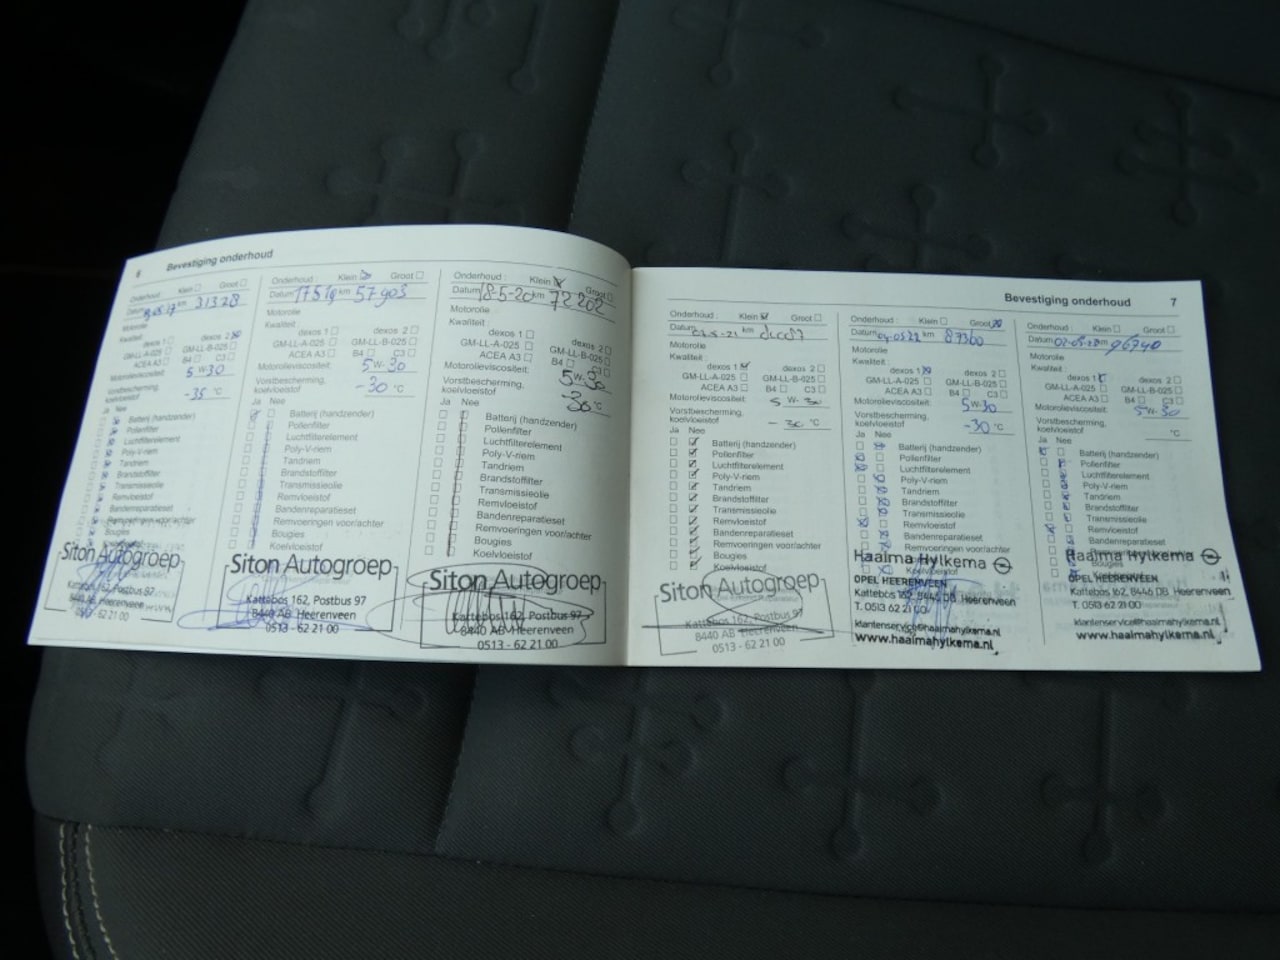 6 Bevestiging onderhoud
Onderhoud : Klein Groot
Datum km 31328
Motorolie
Kwaliteit : dexos 1 dexos 2
GM-LL-A-025 GM-LL-B-025
ACEA A3 B4 C3
Motorolieviscositeit: 5 W-30
Vorstbescherming,
koelvloeistof -35 °C
Ja Nee
Batterij (handzender)
Pollenfilter
Luchtfilterelement
Poly-V-riem
Tandriem
Brandstoffilter
Transmissieolie
Remvloeistof
Bandenreparatieset
Remvoeringen voor/achter
Bougies
Siton Autogroep
Kattebos 162, Postbus 97
8440 AB Heerenveen
0513 - 62 21 00
Onderhoud : Klein Groot
Datum 17 5 19 km 57903
Motorolie
Kwaliteit : dexos 1 dexos 2
GM-LL-A-025 GM-LL-B-025
ACEA A3 B4 C3
Motorolieviscositeit: 5 W-30
Vorstbescherming,
koelvloeistof -30 °C
Ja Nee
Batterij (handzender)
Pollenfilter
Luchtfilterelement
Poly-V-riem
Tandriem
Brandstoffilter
Transmissieolie
Remvloeistof
Bandenreparatieset
Remvoeringen voor/achter
Bougies
Koelvloeistof
Siton Autogroep
Kattebos 162, Postbus 97
8440 AB Heerenveen
0513 - 62 21 00
Onderhoud : Klein Groot
Datum 18-5-20 km 72202
Motorolie
Kwaliteit : dexos 1 dexos 2
GM-LL-A-025 GM-LL-B-025
ACEA A3 B4 C3
Motorolieviscositeit: 5 W-30
Vorstbescherming,
koelvloeistof °C
Ja Nee
Batterij (handzender)
Pollenfilter
Luchtfilterelement
Poly-V-riem
Tandriem
Brandstoffilter
Transmissieolie
Remvloeistof
Bandenreparatieset
Remvoeringen voor/achter
Bougies
Koelvloeistof
Siton Autogroep
Kattebos 162, Postbus 97
8440 AB Heerenveen
0513 - 62 21 00
Bevestiging onderhoud 7
Onderhoud : Klein Groot
Datum km
Motorolie
Kwaliteit : dexos 1 dexos 2
GM-LL-A-025 GM-LL-B-025
ACEA A3 B4 C3
Motorolieviscositeit: 5 W- 30
Vorstbescherming,
koelvloeistof - 30 °C
Ja Nee
Batterij (handzender)
Pollenfilter
Luchtfilterelement
Poly-V-riem
Tandriem
Brandstoffilter
Transmissieolie
Remvloeistof
Bandenreparatieset
Remvoeringen voor/achter
Bougies
Koelvloeistof
Siton Autogroep
Kattebos 162, Postbus 97
8440 AB Heerenveen
0513 - 62 21 00
Onderhoud : Klein Groot
Datum 04-0522 km 87360
Motorolie
Kwaliteit : dexos 1 dexos 2
GM-LL-A-025 GM-LL-B-025
ACEA A3 B4 C3
Motorolieviscositeit: 5 W-30
Vorstbescherming,
koelvloeistof -30 °C
Ja Nee
Batterij (handzender)
Pollenfilter
Luchtfilterelement
Poly-V-riem
Tandriem
Brandstoffilter
Transmissieolie
Remvloeistof
Bandenreparatieset
Remvoeringen voor/achter
Haaima Hylkema
OPEL HEERENVEEN
Kattebos 162, 8446 DB Heerenveen
T. 0513 62 21 00
klantenservice@haaimahylkema.nl
www.haaimahylkema.nl
Onderhoud : Klein Groot
Datum km 96740
Motorolie
Kwaliteit : dexos 1 dexos 2
GM-LL-A-025 GM-LL-B-025
ACEA A3 B4 C3
Motorolieviscositeit: 5 W- 30
Vorstbescherming,
koelvloeistof °C
Ja Nee
Batterij (handzender)
Pollenfilter
Luchtfilterelement
Poly-V-riem
Tandriem
Brandstoffilter
Transmissieolie
Remvloeistof
Bandenreparatieset
Remvoeringen voor/achter
Bougies
Haaima Hylkema
OPEL HEERENVEEN
Kattebos 162, 8446 DB Heerenveen
T. 0513 62 21 00
klantenservice@haaimahylkema.nl
www.haaimahylkema.nl